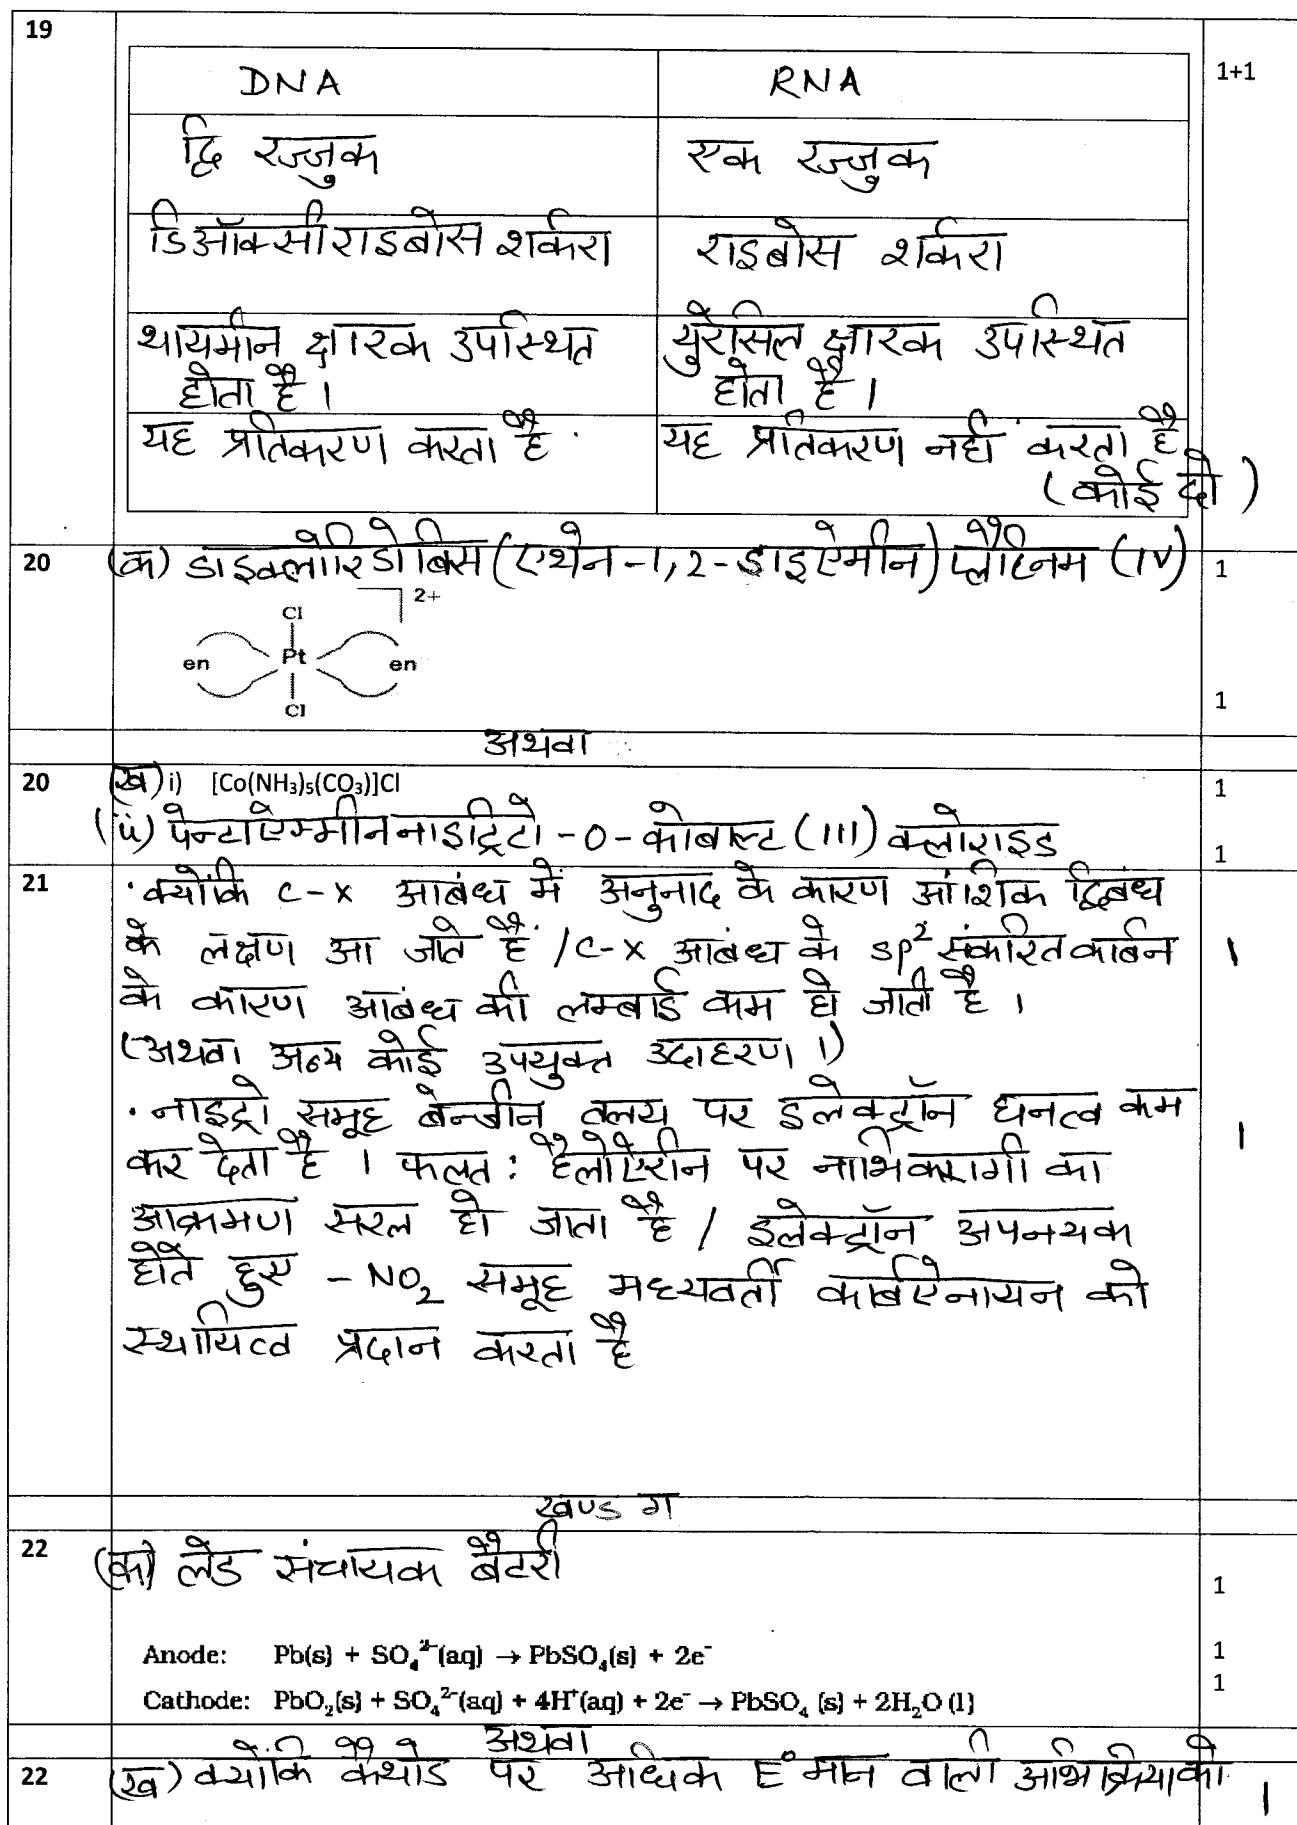 19
1+1
DNA RNA
द्वि रज्जुक एक रज्जुक
डिऑक्सीराइबोस शर्करा राइबोस शर्करा
थायमीन क्षारक उपस्थित युरेसिल क्षारक उपस्थित
होता है। होता है।
यह प्रतिकरण करता है यह प्रतिकरण नहीं करता है
(कोई दो)
20 (क) डाइक्लोरिडोबिस(एथेन-1,2-डाइऐमीन)प्लैटिनम (IV) 1
2+
Cl
en Pt en
Cl
1
अथवा
20 (ख) i) [Co(NH₃)₅(CO₃)]Cl 1
(ii) पेन्टाऐम्मीननाइट्रिटो-O-कोबाल्ट (III) क्लोराइड 1
21 · क्योंकि C-X आबंध में अनुनाद के कारण आंशिक द्विबंध
के लक्षण आ जाते हैं / C-X आबंध के sp² संकरित कार्बन 1
के कारण आबंध की लम्बाई कम हो जाती है।
(अथवा अन्य कोई उपयुक्त उदाहरण।)
· नाइट्रो समूह बेन्जीन वलय पर इलेक्ट्रॉन घनत्व कम 1
कर देता है। फलत: हैलोऐरीन पर नाभिकरागी का
आक्रमण सरल हो जाता है / इलेक्ट्रॉन अपनयक
होते हुए -NO₂ समूह मध्यवर्ती कार्बऐनायन को
स्थायित्व प्रदान करता है
खण्ड ग
22 (क) लेड संचायक बैटरी
1
Anode: Pb(s) + SO₄²⁻(aq) → PbSO₄(s) + 2e⁻ 1
Cathode: PbO₂(s) + SO₄²⁻(aq) + 4H⁺(aq) + 2e⁻ → PbSO₄ (s) + 2H₂O (l) 1
अथवा
22 (ख) क्योंकि कैथोड पर अधिक E° मान वाली अभिक्रिया को 1